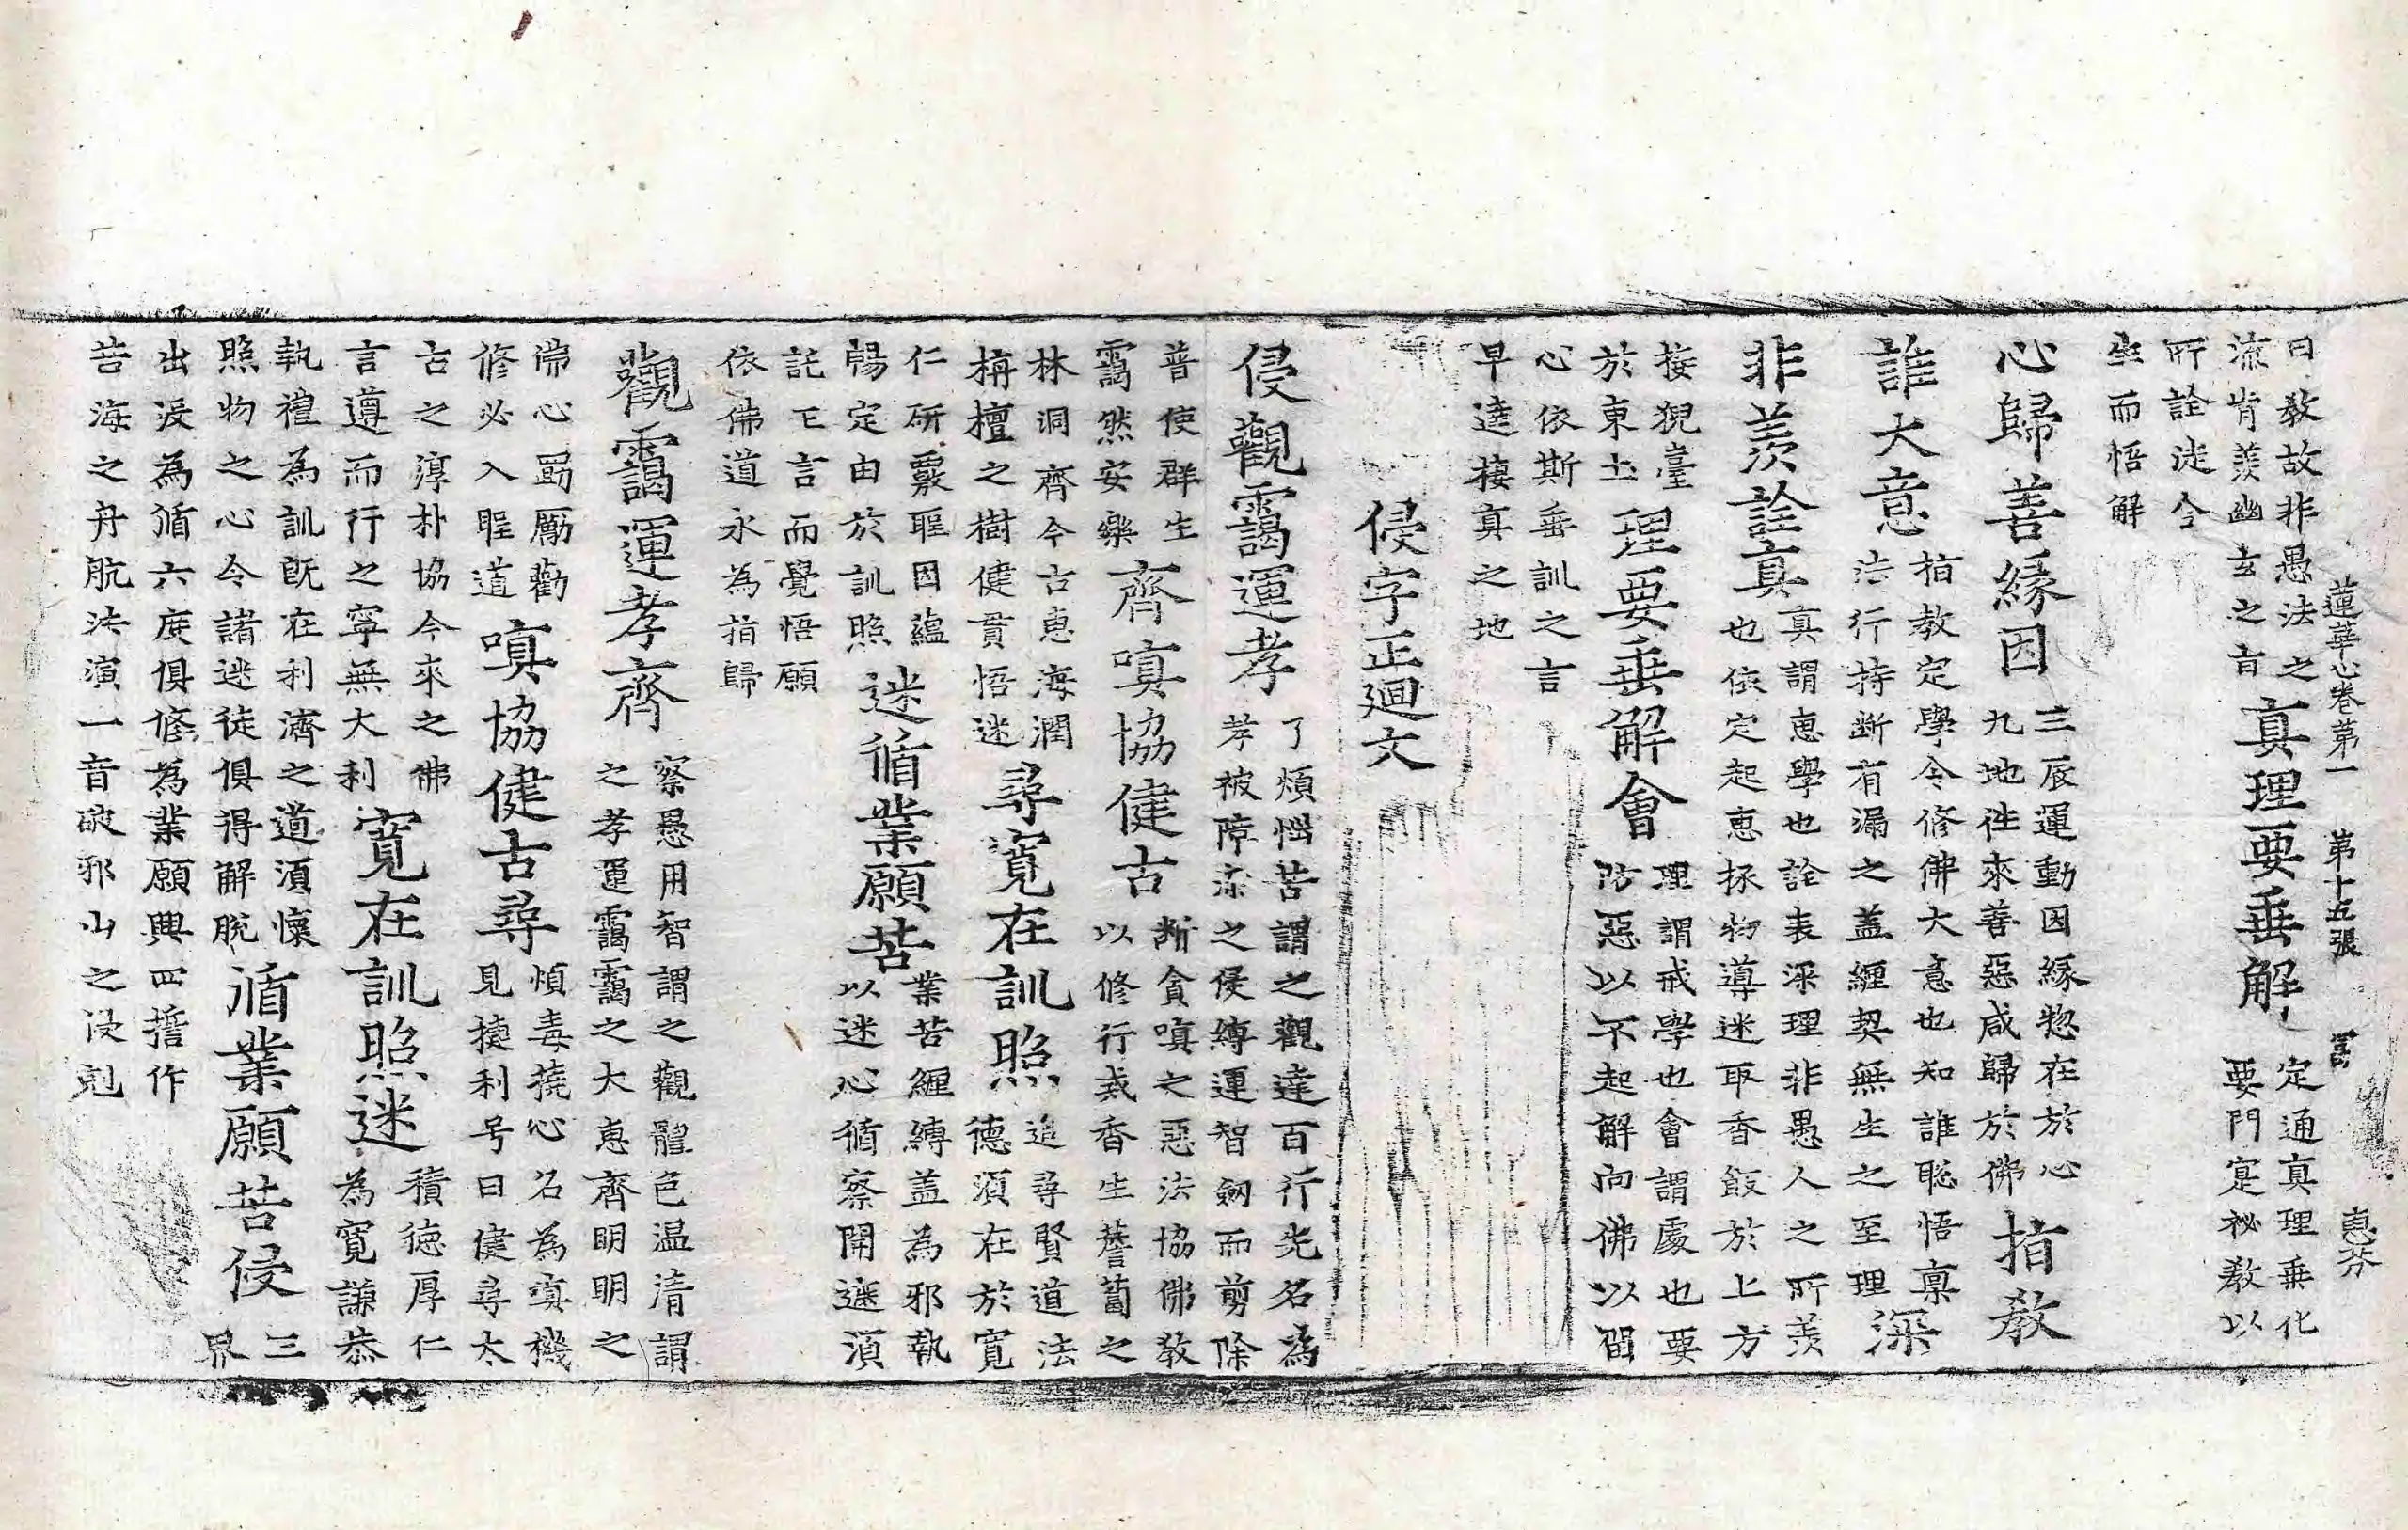 蓮華心卷第一 第十五張 言 惠芬
曰教故非愚法之
流肯羨幽玄之旨
真理要垂解
定通真理垂化
要門寔祕教以
所詮迷令
生而悟解
心歸善緣因
三辰運動因緣惣在於心
九地往來善惡咸歸於佛
指教
誰大意
指教定學令修佛大意也知誰聡悟稟
法行持断有漏之盖纏契無生之至理
深
非羨詮真
真謂惠學也詮表深理非愚人之所羨
也依定起惠拯物導迷取香飯於上方
接猊臺
於東土
理要垂解會
理謂戒學也會謂處也要
防惡以不起解向佛以留
心依斯垂訓之言
早達棲真之地
侵字正廻文
侵觀靄運孝
了煩惱苦謂之觀達百行先名為
孝被障染之侵縛運智劒而剪除
普使群生
靄然安樂
齊嗔協健古
断貪嗔之惡法協佛教
以修行爇香生薝蔔之
林洞齊今古惠海潤
栴檀之樹健貫悟迷
尋寬在訓照
追尋賢道法
德湏在於寬
仁研覈聖因蘊
暢定由於訓照
迷循業願苦
業苦纏縛盖為邪執
以迷心循察開遮湏
託乇言而覺悟願
依佛道永為指歸
觀靄運孝齊
察愚用智謂之觀龍色温清謂
之孝運靄靄之大惠齊明明之
佛心勗勵勸
修必入聖道
嗔協健古尋
煩毒撓心名為嗔機
見㨗利号曰健尋太
古之淳朴協今來之佛
言遵而行之寧無大利
寬在訓照迷
積德厚仁
為寬謙恭
執禮為訓旣在利濟之道湏懷
照物之心令諸迷徒俱得解脫
循業願苦侵
三
界
出没為循六度俱修為業願興四誓作
苦海之舟航法演一音破邪山之侵剋